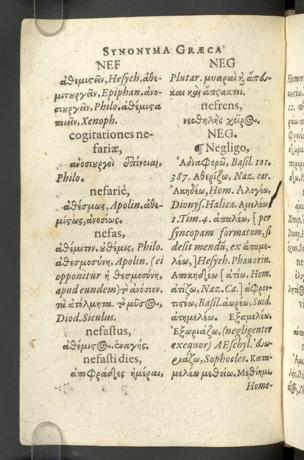 SYNONYMA GRÆCA
NEF
ἀθεμιςεῖν, Hesych. ἀθε-
μιτουργεῖν, Epiphan. ἀνο-
σιουργεῖν, Philo. ἀθέμιςα
ποιεῖν, Xenoph.
cogitationes ne-
fariæ,
ἀνοσιουργοὶ ἐπίνοιαι,
Philo.
nefariè,
ἀθέσμως, Apolin. ἀθε-
μίςως, ἀνοσίως.
nefas,
ἀθέμιτον. οὐθέμις, Philo.
ἀθεσμοσύνη, Apolin. (ei
opponitur ἡ θεσμοσύνη,
apud eundem) τὸ ἀνόσιον.
τὰ ἀτόλμητα. τὸ μῦσος,
Diod. Siculus.
nefastus,
ἀθέμιςος. ἐναγής.
nefasti dies,
ἀποφράδες ἡμέραι,
NEG
Plutar. μιαραὶ ἢ
καὶ ἄπρακτοι.
nefrens,
νεοθηλὴς χοῖρος.
NEG.
¶ Negligo,
Ἀδιαφορῶ, Basil. 101.
387. Ἀθερίζω, Naz. car.
Ἀκηδέω, Hom. Ἀλογέω,
Dionys. Halica. Ἀμελέω
1. Tim. 4. ἀπαλέω, [per
syncopam formatum, si
desit mendū, ex ἀπαμε-
λέω,] Hesych. Phavorin.
Ἀποκηδέω [ἀτίω, Hom.
ἀτίζω, Naz. Ca.] ἀφρον-
τιςέω, Basil. ἀωρέω, Suid.
ἀτημελέω. Ἐξαμελέω.
Ἐξωριάζω, (negligenter
exequor) AEschyl.
Sophocles. Κατα-
μελέω μεθείω. Μεθίημι,
Home-